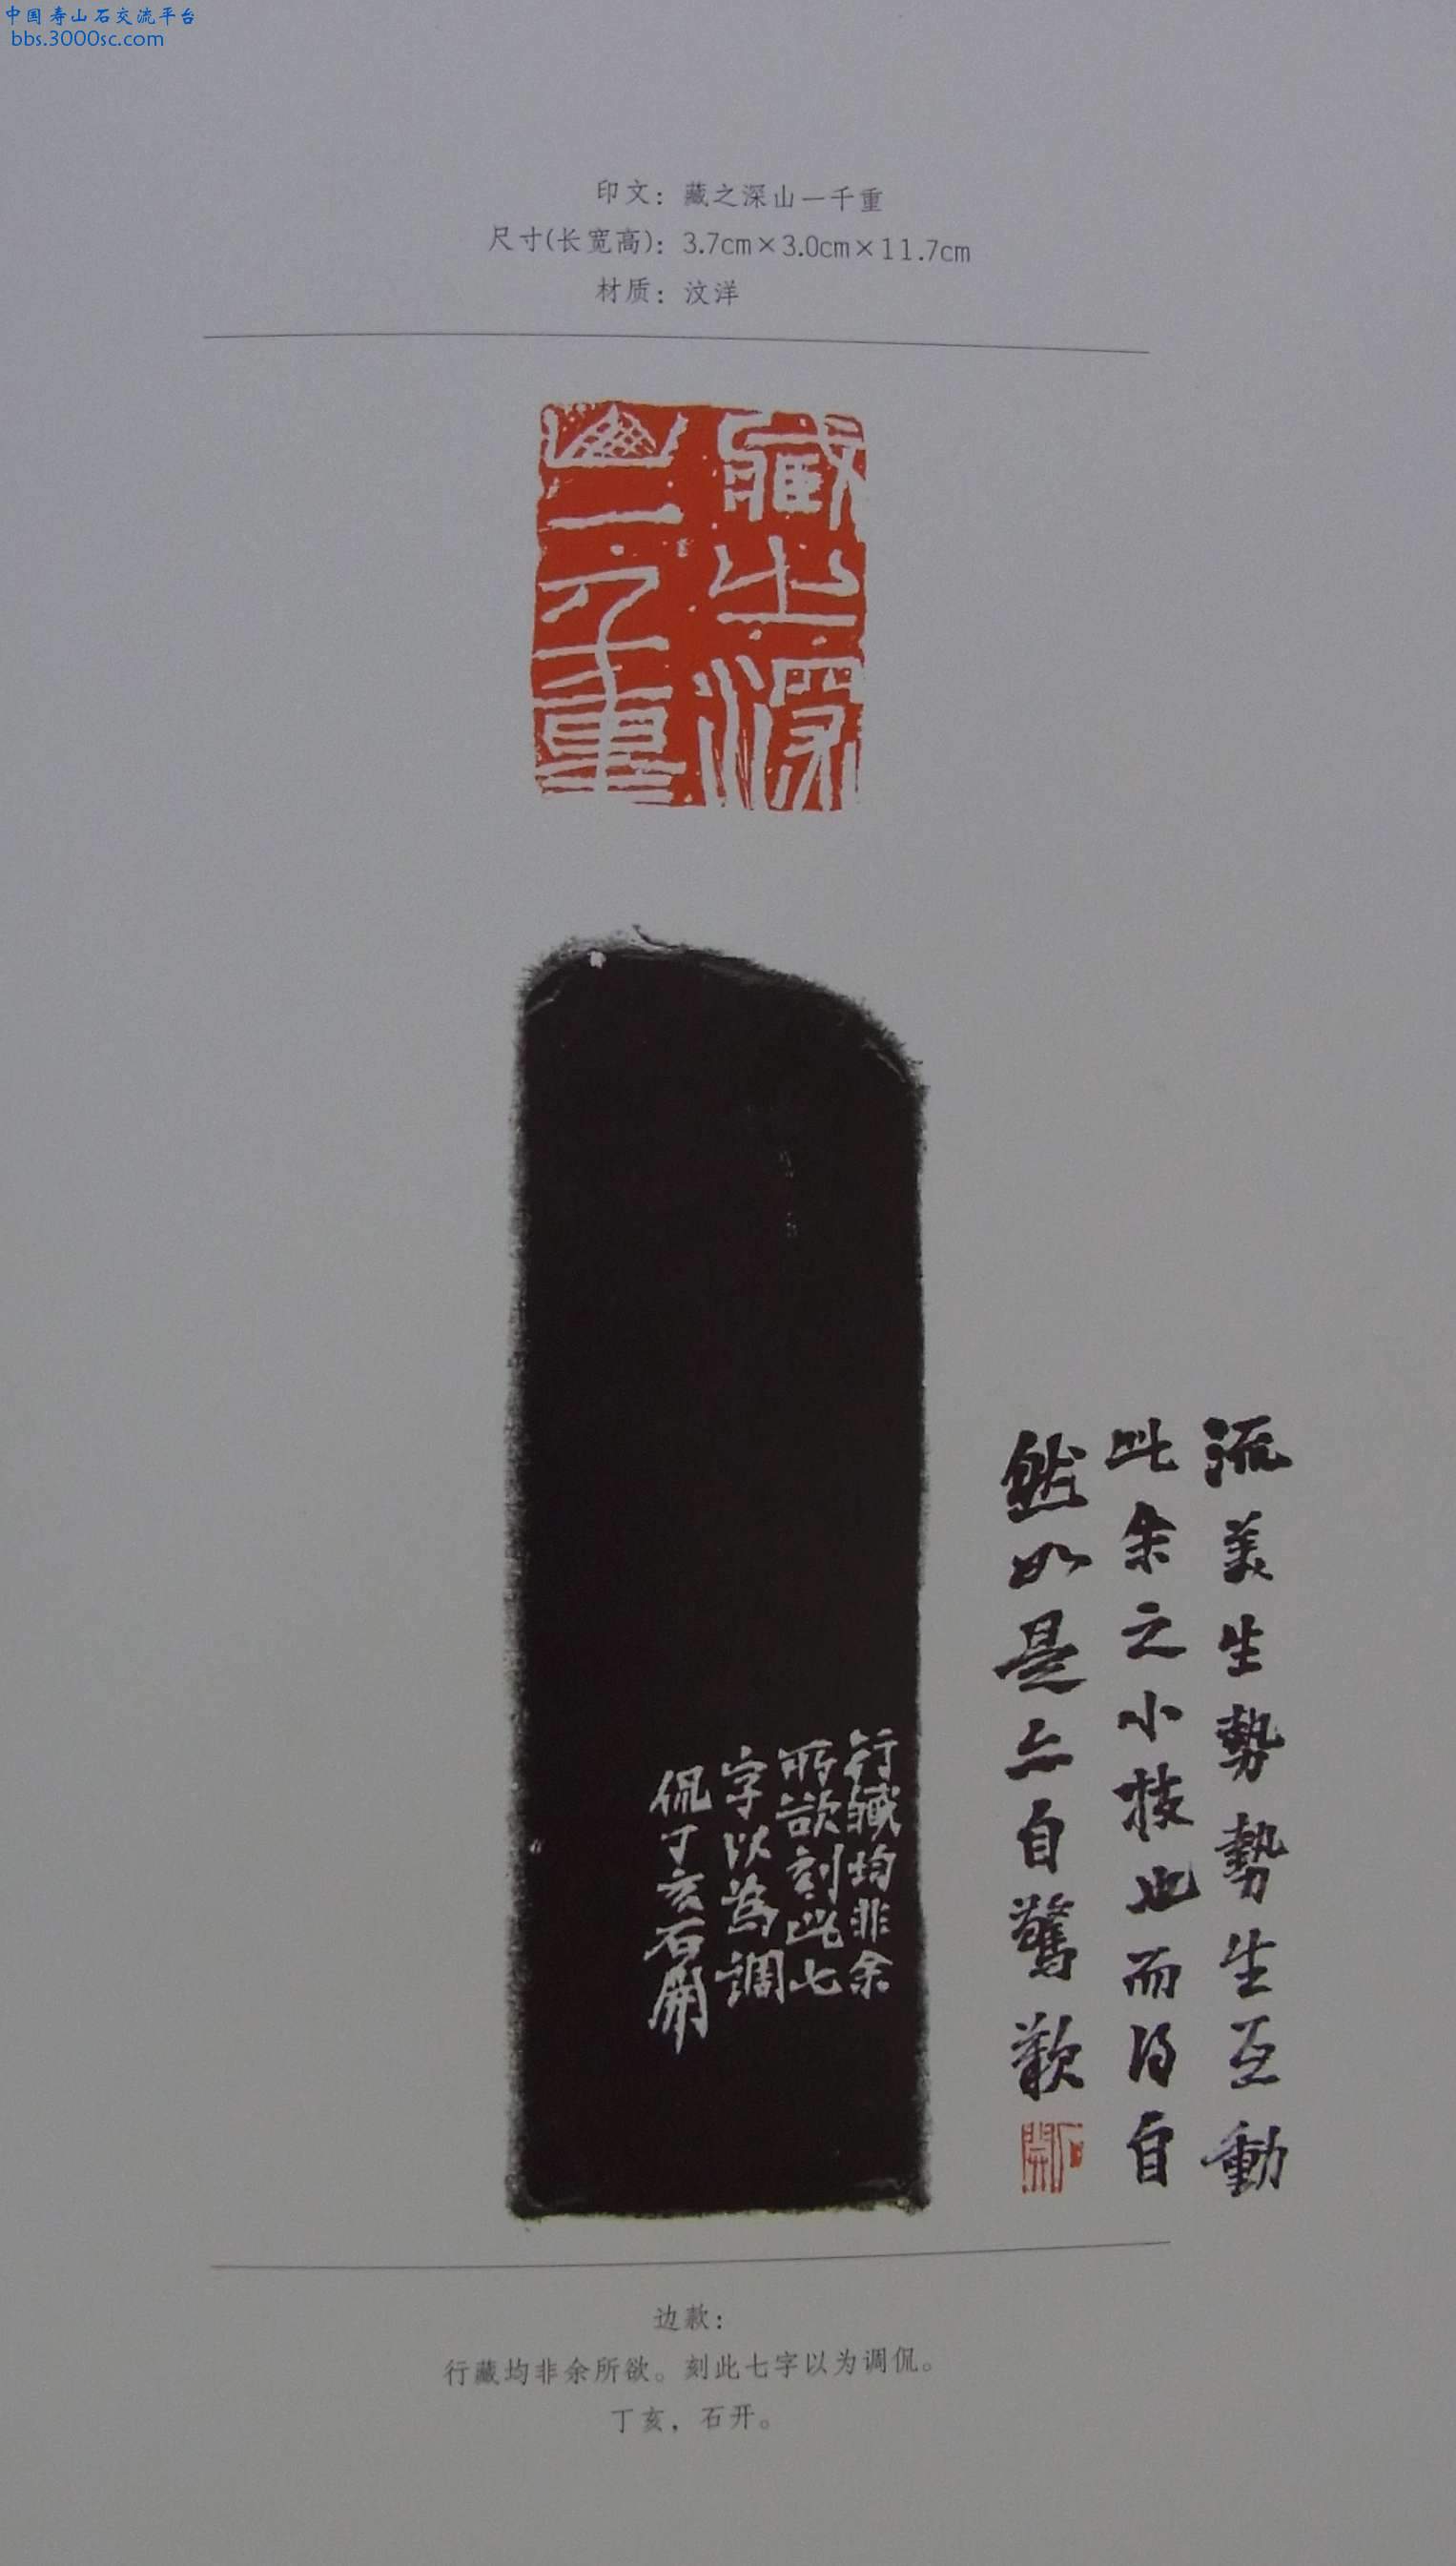 中国寿山石交流平台
bbs.3000sc.com
印文：藏之深山一千重
尺寸(长宽高)：3.7cm×3.0cm×11.7cm
材质：汶洋
藏之深
山一千重
行藏均非余
所欲刻此七
字以為調
侃丁亥石開
流美生勢勢生互動
此余之小技也而得自
然如是亦自驚歎
石開
边款：
行藏均非余所欲。刻此七字以为调侃。
丁亥，石开。